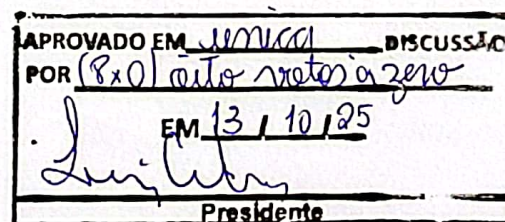 APROVADO EM única DISCUSSÃO
POR (8x0) oito votos a zero
EM 13 / 10 / 25
Presidente